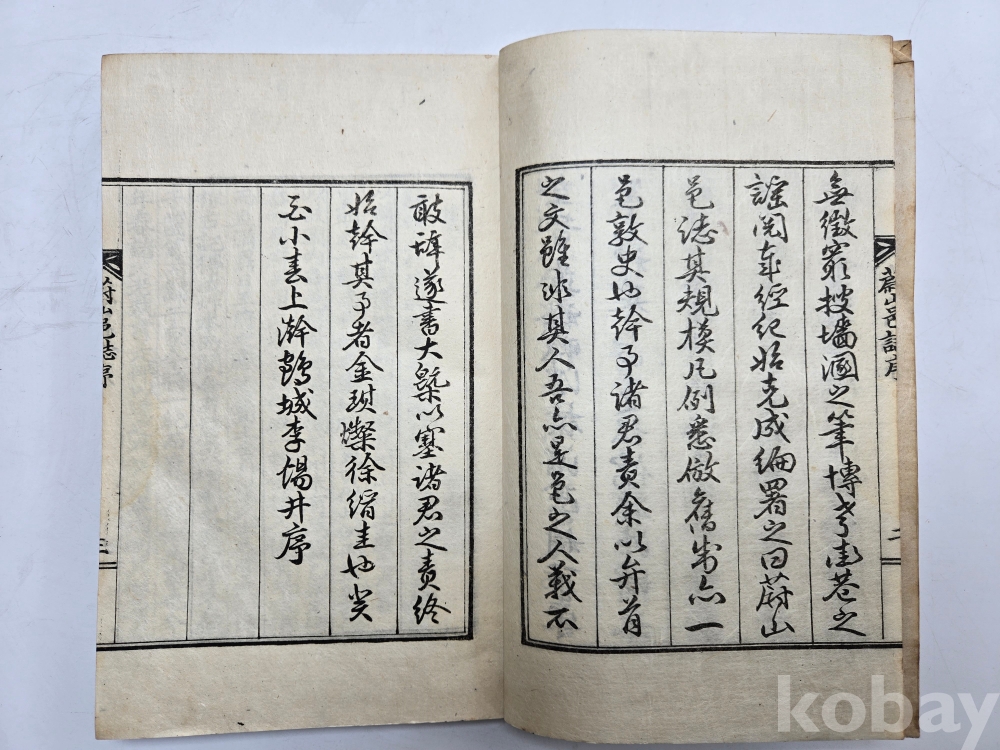 無徵窮搜墻溷之筆博考街巷之
謠閱年經紀始克成編署之曰蔚山
邑誌其規模凡例悉倣舊史亦一
邑敦史也幹事諸君責余以弁首
之文雖非其人吾亦是邑之人義不
蔚山邑誌序
二
敢辭遂書大槩以塞諸君之責終
始幹其事者金瑛燦徐縉圭也癸
小春上澣鶴城李場井序
蔚山邑誌序
三
kobay